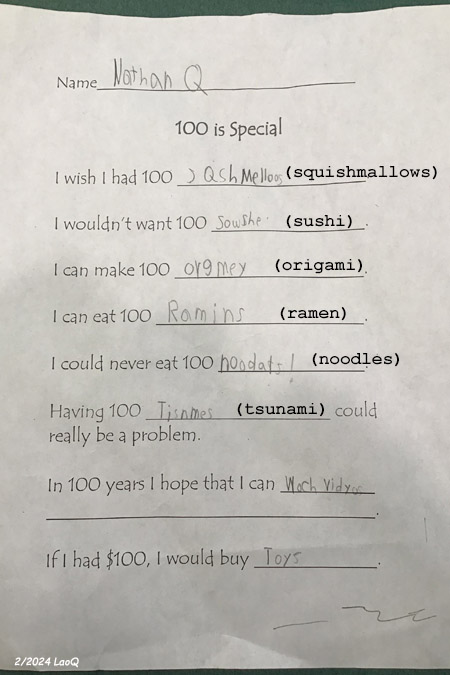 Name Nathan Q
100 is Special
I wish I had 100 QshMelloos (squishmallows)
I wouldn't want 100 Sowshe (sushi).
I can make 100 orgmey (origami).
I can eat 100 Ramins (ramen).
I could never eat 100 noodats! (noodles)
Having 100 Tisnmes (tsunami) could
really be a problem.
In 100 years I hope that I can Woch Vidyos
.
If I had $100, I would buy Toys.
2/2024 LaoQ